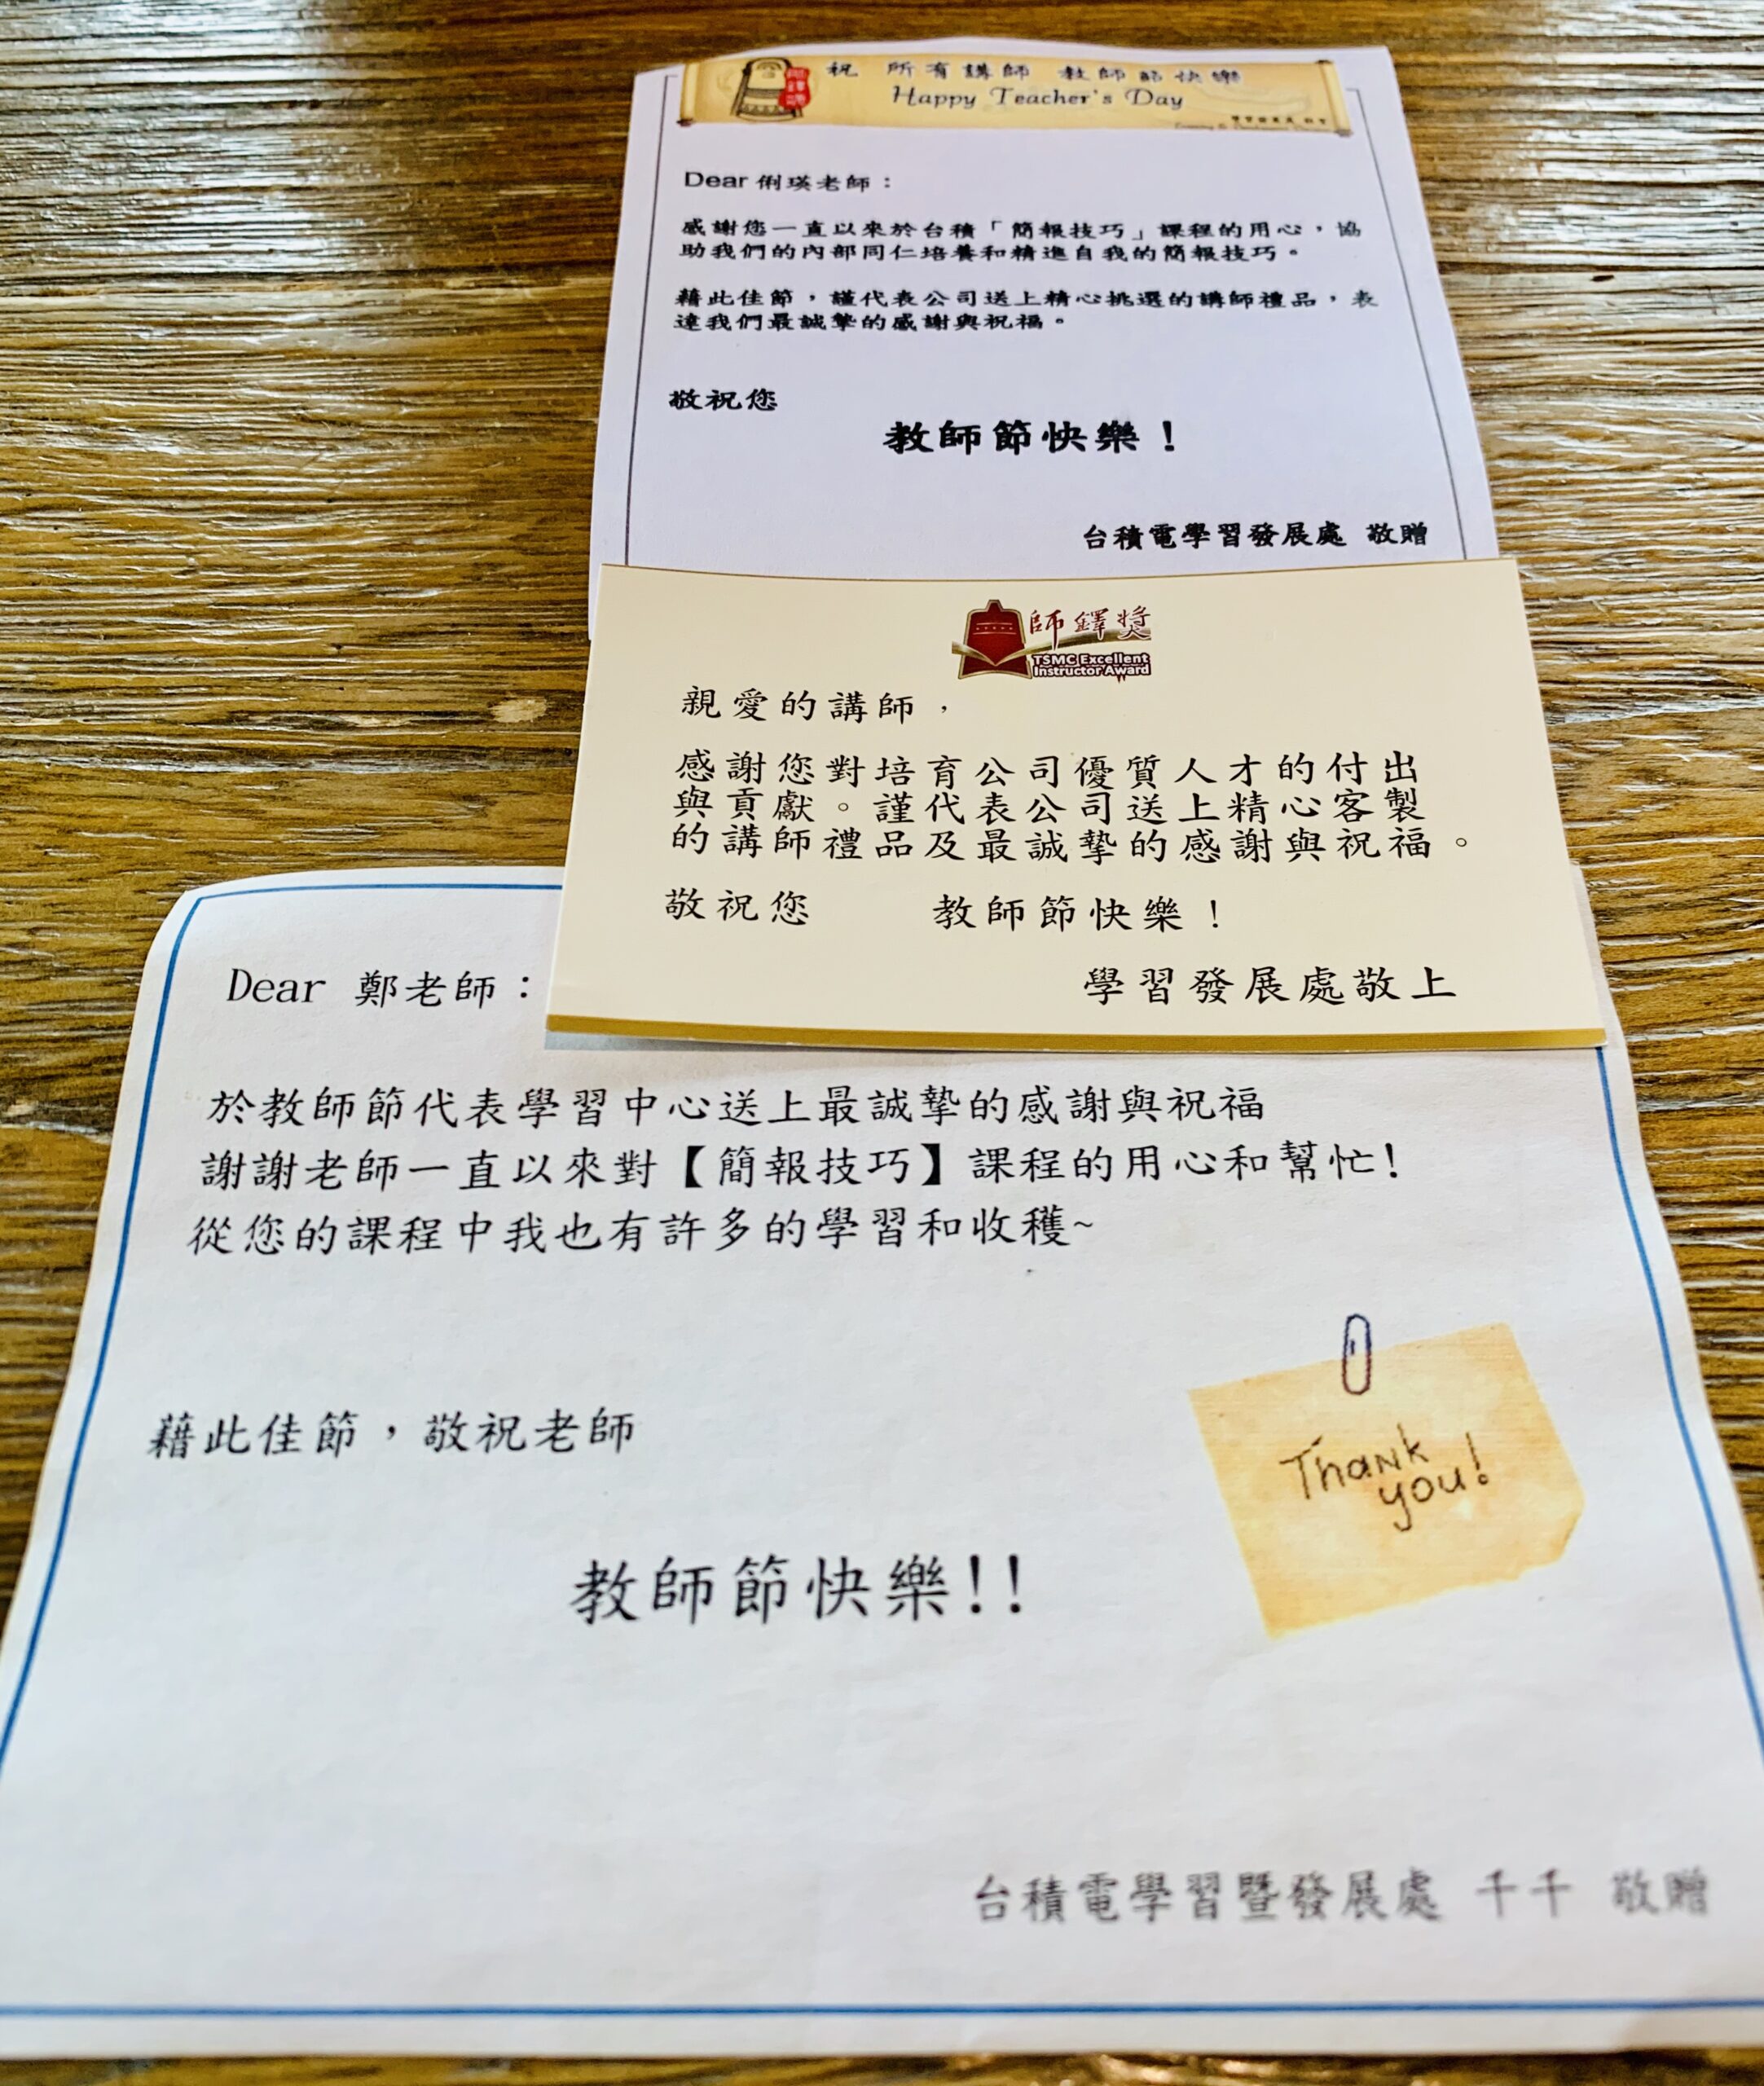 祝 所有講師 教師節快樂
Happy Teacher's Day
Dear 俐瑛老師：
感謝您一直以來於台積「簡報技巧」課程的用心，協
助我們的內部同仁培養和精進自我的簡報技巧。
藉此佳節，謹代表公司送上精心挑選的講師禮品，表
達我們最誠摯的感謝與祝福。
敬祝您
教師節快樂！
台積電學習發展處 敬贈
師鐸獎
TSMC Excellent
Instructor Award
親愛的講師，
感謝您對培育公司優質人才的付出
與貢獻。謹代表公司送上精心客製
的講師禮品及最誠摯的感謝與祝福。
敬祝您 教師節快樂！
學習發展處敬上
Dear 鄭老師：
於教師節代表學習中心送上最誠摯的感謝與祝福
謝謝老師一直以來對【簡報技巧】課程的用心和幫忙!
從您的課程中我也有許多的學習和收穫~
Thank
you!
藉此佳節，敬祝老師
教師節快樂!!
台積電學習暨發展處 千千 敬贈